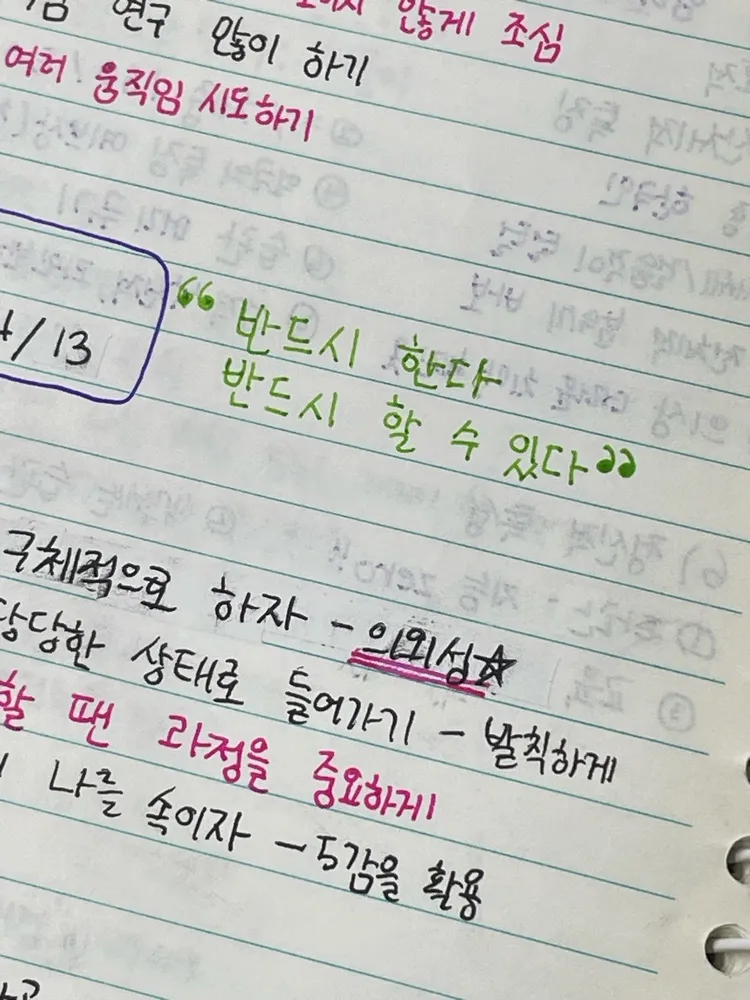 않게 조심
연구 많이 하기
여러 움직임 시도하기
/13
“ 반드시 한다
반드시 할 수 있다 ”
구체적으로 하자 - 의외성☆
당당한 상태로 들어가기 - 발칙하게
할 땐 과정을 중요하게!
나를 속이자 - 5감을 활용